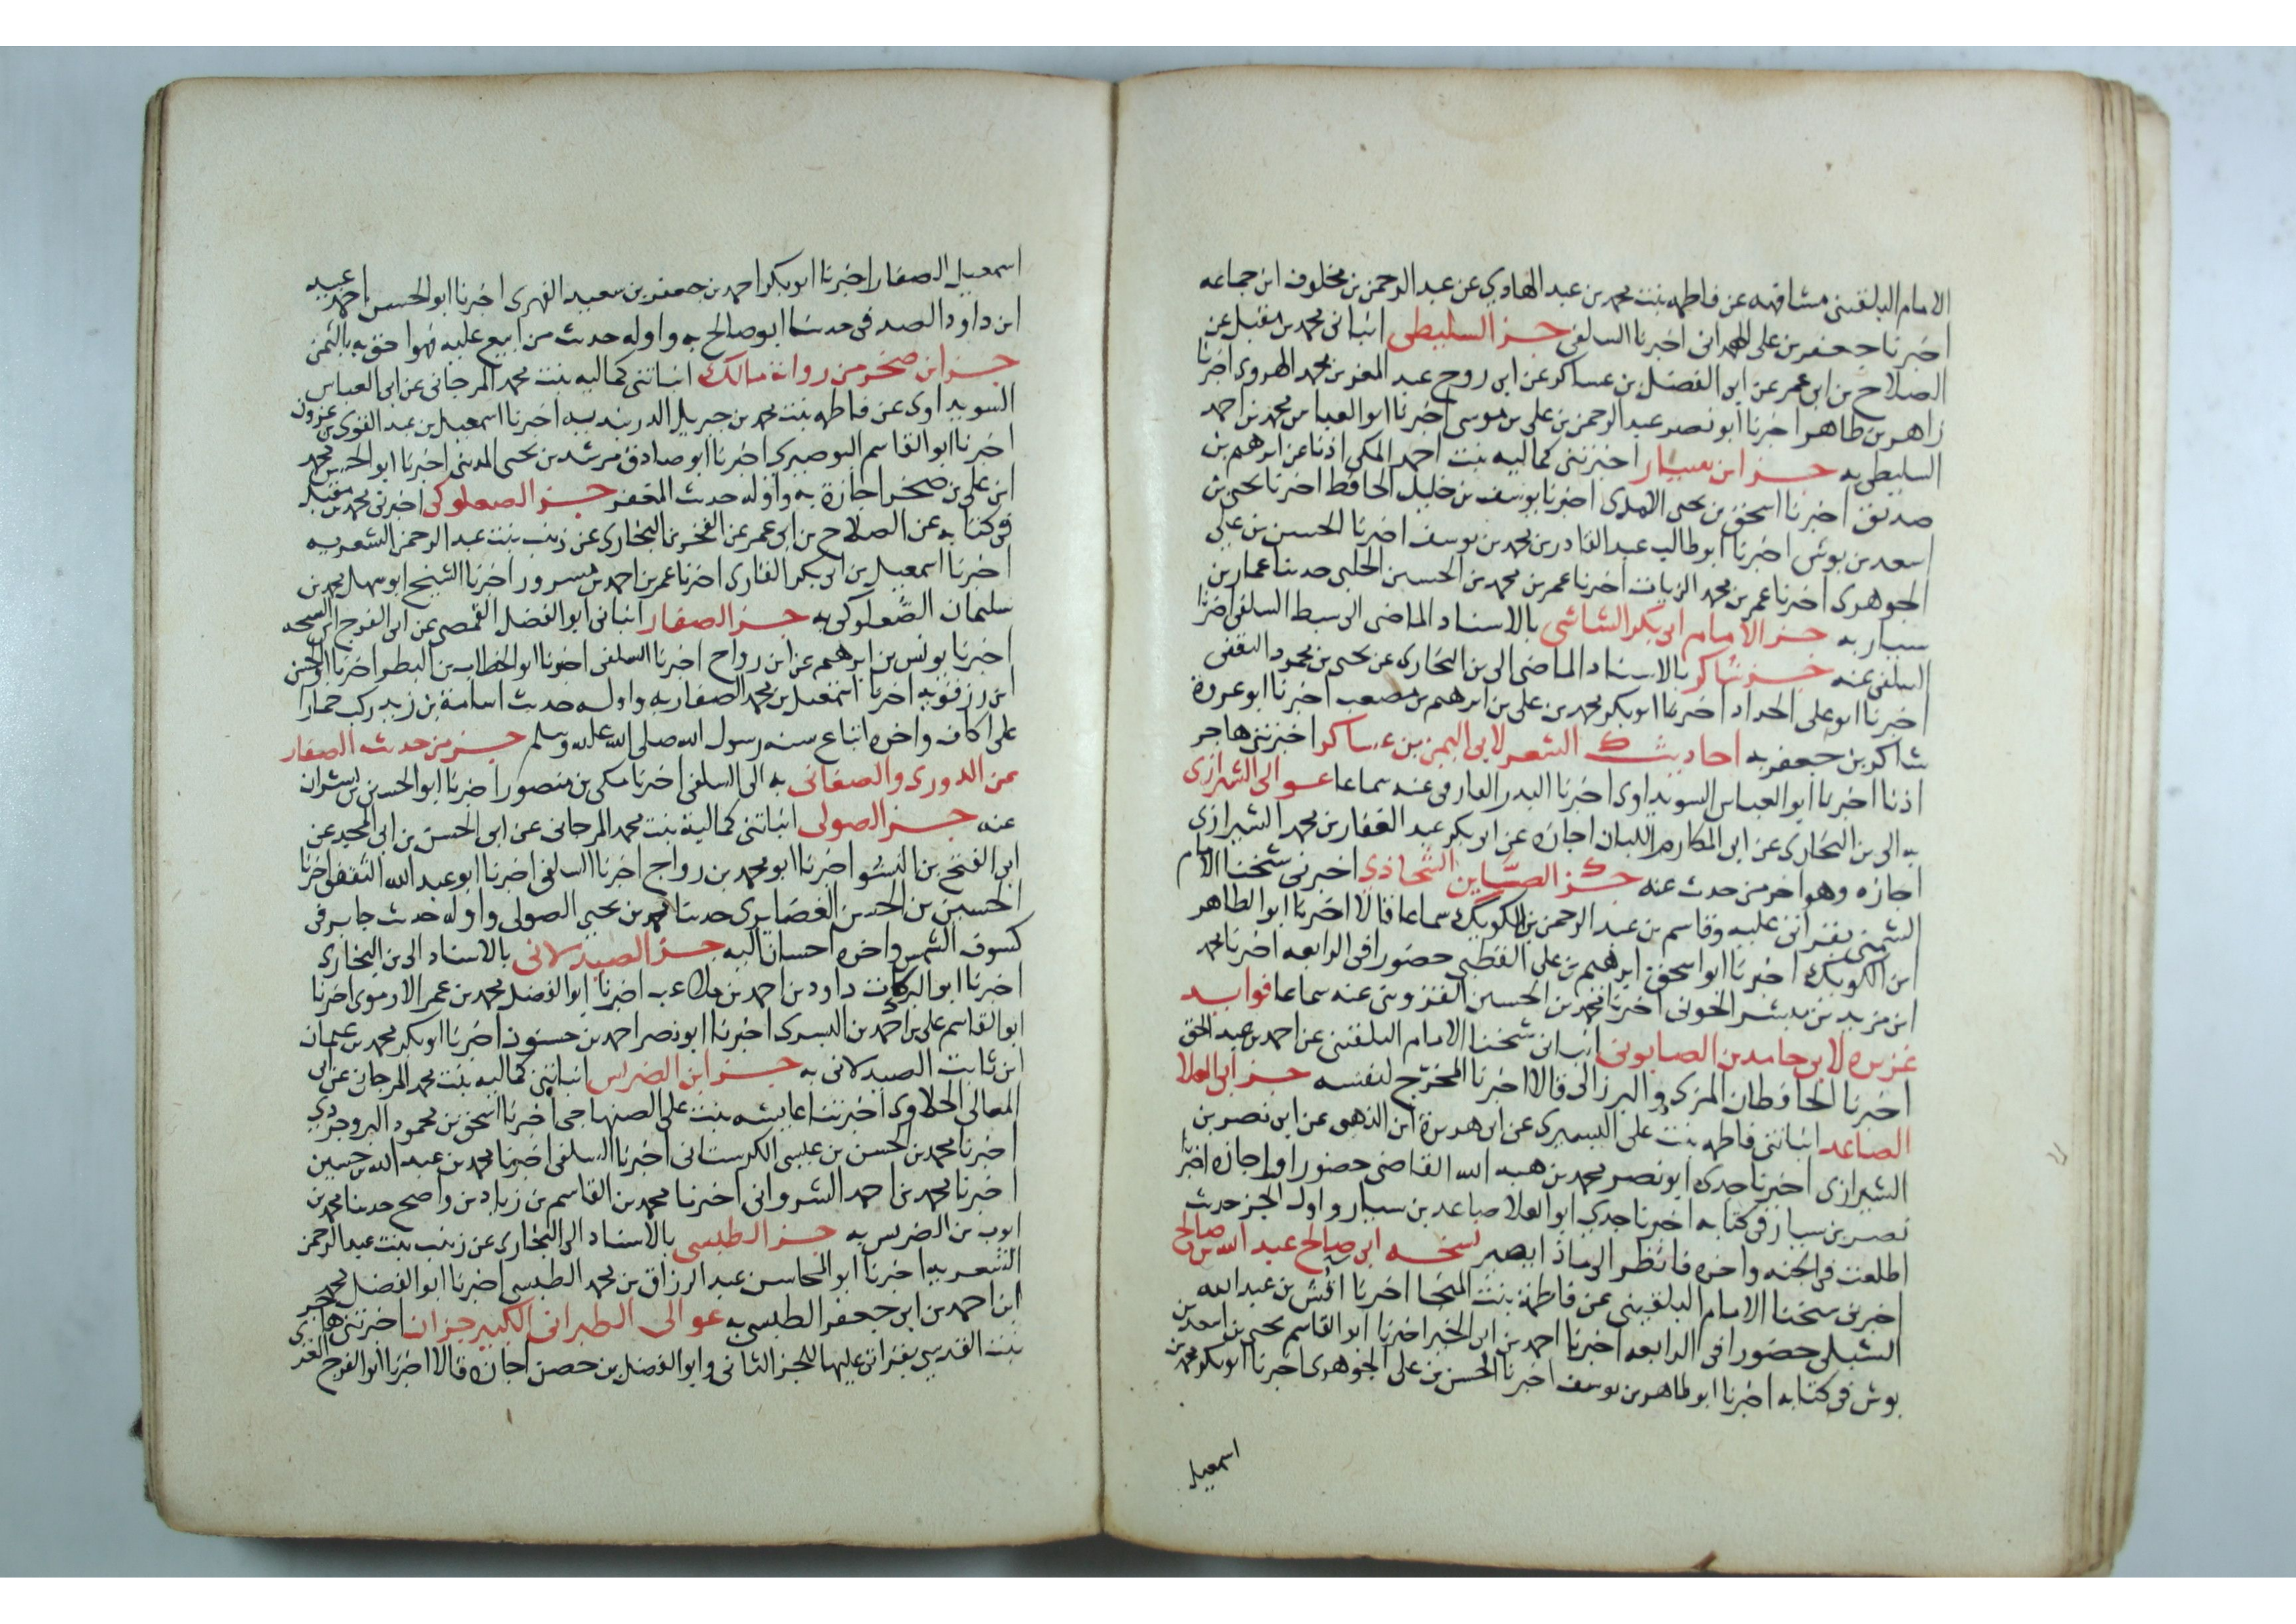 الامام البلقيني مشافهه عن فاطمه بنت محمد بن عبد الهادي عن عبد الرحمن بن مخلوف ابن جماعه
اخبرنا جعفر بن علي الهمداني اخبرنا السلفي جز السليطي انباني محمد بن مقبل عن
الصلاح بن ابي عمر عن ابي الفضل بن عساكر عن ابي روح عبد المعز بن محمد الهروي اخبرنا
زاهر بن طاهر اخبرنا ابو نصر عبد الرحمن بن علي بن موسى اخبرنا ابو العباس محمد بن احمد
السليطي به جز ابن سيار اخبرتني كماليه بنت احمد المكي اذنا عن ابرهيم بن
صديق اخبرنا اسحق بن يحيى الامدي اخبرنا يوسف بن خليل الحافظ اخبرنا يحيى بن
اسعد بن بوش اخبرنا ابو طالب عبد القادر بن محمد بن يوسف اخبرنا الحسن بن علي
الجوهري اخبرنا عمر بن محمد الزيات اخبرنا عمر بن محمد بن الحسين الحلبي حدثنا عمار بن
سيار به جز الامام ابي بكر الشاشي بالاسناد الماضي الى سبط السلفي اخبرنا
السلفي عنه جز شاكر بالاسناد الماضي الى بن البخاري عن يحيى بن محمود الثقفي
اخبرنا ابو علي الحداد اخبرنا ابو بكر محمد بن علي بن ابرهيم بن مصعب اخبرنا ابو عروة
شاكر بن جعفر به احاديث الشعر لابي اليمن بن عساكر اخبرتني هاجر
اذنا اخبرنا ابو العباس السويداوي اخبرنا البدر الفارقي عنه سماعا عوالي الشيرازي
به الى بن البخاري عن ابي المكارم اللبان اجازة عن ابو بكر عبد الغفار بن محمد الشيرازي
اجازه وهو اخر من حدث عنه جز الصباين الشحاذي اخبرني شيخنا الامام
الشمني بقراتي عليه وقاسم بن عبد الرحمن بن الكويك سماعا قالا اخبرنا ابو الطاهر
ابن الكويك اخبرنا ابو اسحق ابرهيم بن علي القطبي حضورا في الرابعه اخبرنا محمد
ابن مزيد بن بشر الخوني اخبرنا محمد بن الحسين القزويني عنه سماعا فوايد
عزيزه لابي حامد بن الصابوني انباني شيخنا الامام البلقيني عن احمد بن عبد الحق
اخبرنا الحافظان المزي والبرزالي قالا اخبرنا المخرج لنفسه جز ابي العلا
الصاعد انباتني فاطمه بنت علي اليسيري عن ابي هريرة ابن الذهبي عن ابي نصر بن
الشيرازي اخبرنا جدي ابو نصر محمد بن هبه الله القاضي حضورا واجازه اخبرنا
نصر بن سيار في كتابه اخبرنا جدي ابو العلا صاعد بن سيار واول الجز حديث
اطلعت في الجنه واخره فانظر الى ماذا يصير نسخه ابي صالح عبد الله بن صالح
اخبرني شيخنا الامام البلقيني عن فاطمة بنت المنجا اخبرنا اقش بن عبد الله
الشبلي حضورا في الرابعه اخبرنا احمد بن ابي الخير اخبرنا ابو القاسم يحيى بن اسعد بن
بوش في كتابه اخبرنا ابو طاهر بن يوسف اخبرنا الحسن بن علي الجوهري اخبرنا ابو بكر محمد بن
اسمعيل
اسمعيل الصفار اخبرنا ابو بكر احمد بن جعفر بن سعيد الفهري اخبرنا ابو الحسن احمد عبيد
ابن داود الصدفي حدثنا ابو صالح به واوله حديث من ابيع عليه فهو احق به بالثمن
جز ابن صخر من رواية مالك انباتني كماليه بنت محمد المرجاني عن ابي العباس
السويداوي عن فاطمه بنت محمد بن جبريل الدربنديه اخبرنا اسمعيل بن عبد القوي بن عزون
اخبرنا ابو القاسم البوصيري اخبرنا ابو صادق مرشد بن يحيى المديني اخبرنا ابو الحسن محمد
ابن علي بن صخر اجازة به واوله حديث المغفر جز الصعلوكي اخبرني محمد بن مقبل
في كتابه عن الصلاح بن ابي عمر عن الفخر بن البخاري عن زينب بنت عبد الرحمن الشعريه
اخبرنا اسمعيل بن ابي بكر القاري اخبرنا عمر بن احمد بن مسرور اخبرنا الشيخ ابو سهل محمد بن
سليمان الصعلوكي به جز الصفار انباني ابو الفضل القمصي عن ابي الفرج ابن الشحنه
اخبرنا يونس بن ابرهيم عن ابن رواج اخبرنا السلفي اخبرنا ابو الخطاب بن البطر اخبرنا ابو الحسن
ابن رزقويه اخبرنا اسمعيل بن محمد الصفار به واوله حديث اسامة بن زيد ركب حمارا
على اكاف واخره اتباع سنه رسول الله صلى الله عليه وسلم جز من حديث الصفار
عن الدوري والصغاني به الى السلفي اخبرنا مكي بن منصور اخبرنا ابو الحسين بن بشران
عنه جز الصولي انباتني كمالية بنت محمد المرجاني عن ابي الحسن بن ابي المجد عن
ابي الفتح بن النشو اخبرنا ابو محمد بن رواج اخبرنا السلفي اخبرنا ابو عبد الله الثقفي اخبرنا
الحسين بن الحسن الغضايري حدثنا محمد بن يحيى الصولي واوله حديث جابر في
كسوف الشمس واخره احسان اليه جز الصيدلاني بالاسناد الى بن البخاري
اخبرنا ابو البركات داود بن احمد بن ملاعب اخبرنا ابو الفضل محمد بن عمر الارموي اخبرنا
ابو القاسم علي بن احمد بن البسري اخبرنا ابو نصر احمد بن حسنون اخبرنا ابو بكر محمد بن عثمان
ابن ثابت الصيدلاني به جز ابن الضريس انباتني كماليه بنت محمد المرجاني عن ابي
المعالي الحلاوي اخبرتنا عايشه بنت علي الصنهاجي اخبرنا اسحق بن محمود البروجردي
اخبرنا محمد بن الحسن بن عيسى الكرستاني اخبرنا السلفي اخبرنا محمد بن عبد الله بن حسين
اخبرنا محمد بن احمد الشرواني اخبرنا محمد بن القاسم بن زياد بن واصح حدثنا محمد بن
ايوب بن الضريس به جز الطبسي بالاسناد الى البخاري عن زينب بنت عبد الرحمن
الشعريه اخبرنا ابو المحاسن عبد الرزاق بن محمد الطبسي اخبرنا ابو الفضل محمد
ابن احمد بن ابي جعفر الطبسي به عوالي الطبراني الكبير جزان اخبرتني هاجر
بنت القدسي بقراتي عليها للجز الثاني وابو الفضل بن حصن اجازه قالا اخبرنا ابو الفرج الغزي